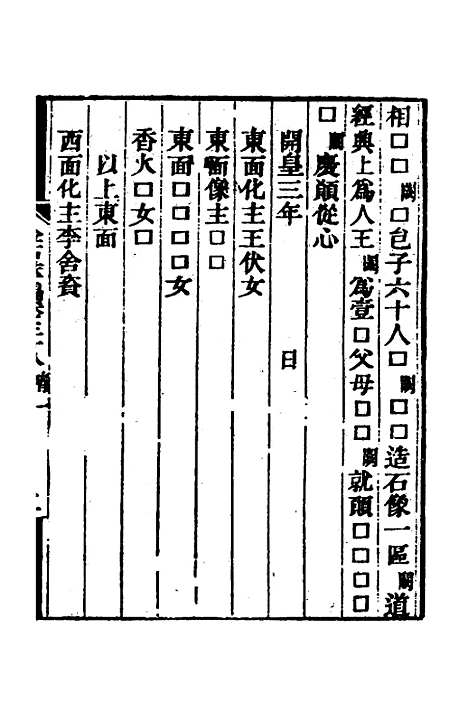 相□□闕□邑子六十人□闕□□造石像一區闕道
經典上爲人王闕爲壹□父母□□闕就頭□□□□
□闕慶願從心
開皇三年 日
東面化主王伏女
東面像主□□
東面□□□□女
香火□女□
以上東面
西面化主李舍賁